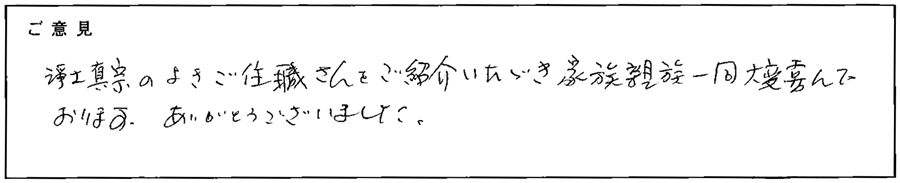 ご意見
浄土真宗のよきご住職さんをご紹介いただき家族親族一同大変喜んで
おります。ありがとうございました。